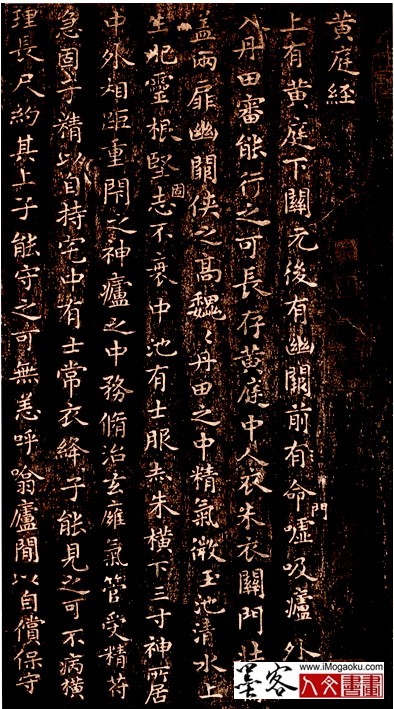 黄庭経
上有黄庭下關元後有幽闕前有命門噓吸廬外
入丹田審能行之可長存黄庭中人衣朱衣關門壯
蓋兩扉幽闕俠之高魏〻丹田之中精氣微玉池清水上
生肥靈根堅固志不衰中池有士服赤朱横下三寸神所居
中外相距重閇之神廬之中務脩治玄膺氣管受精符
急固子精以自持宅中有士常衣絳子能見之可不病横
理長尺約其上子能守之可無恙呼噏廬間以自償保守
墨客
www.iMogaoku.com
人文書畫